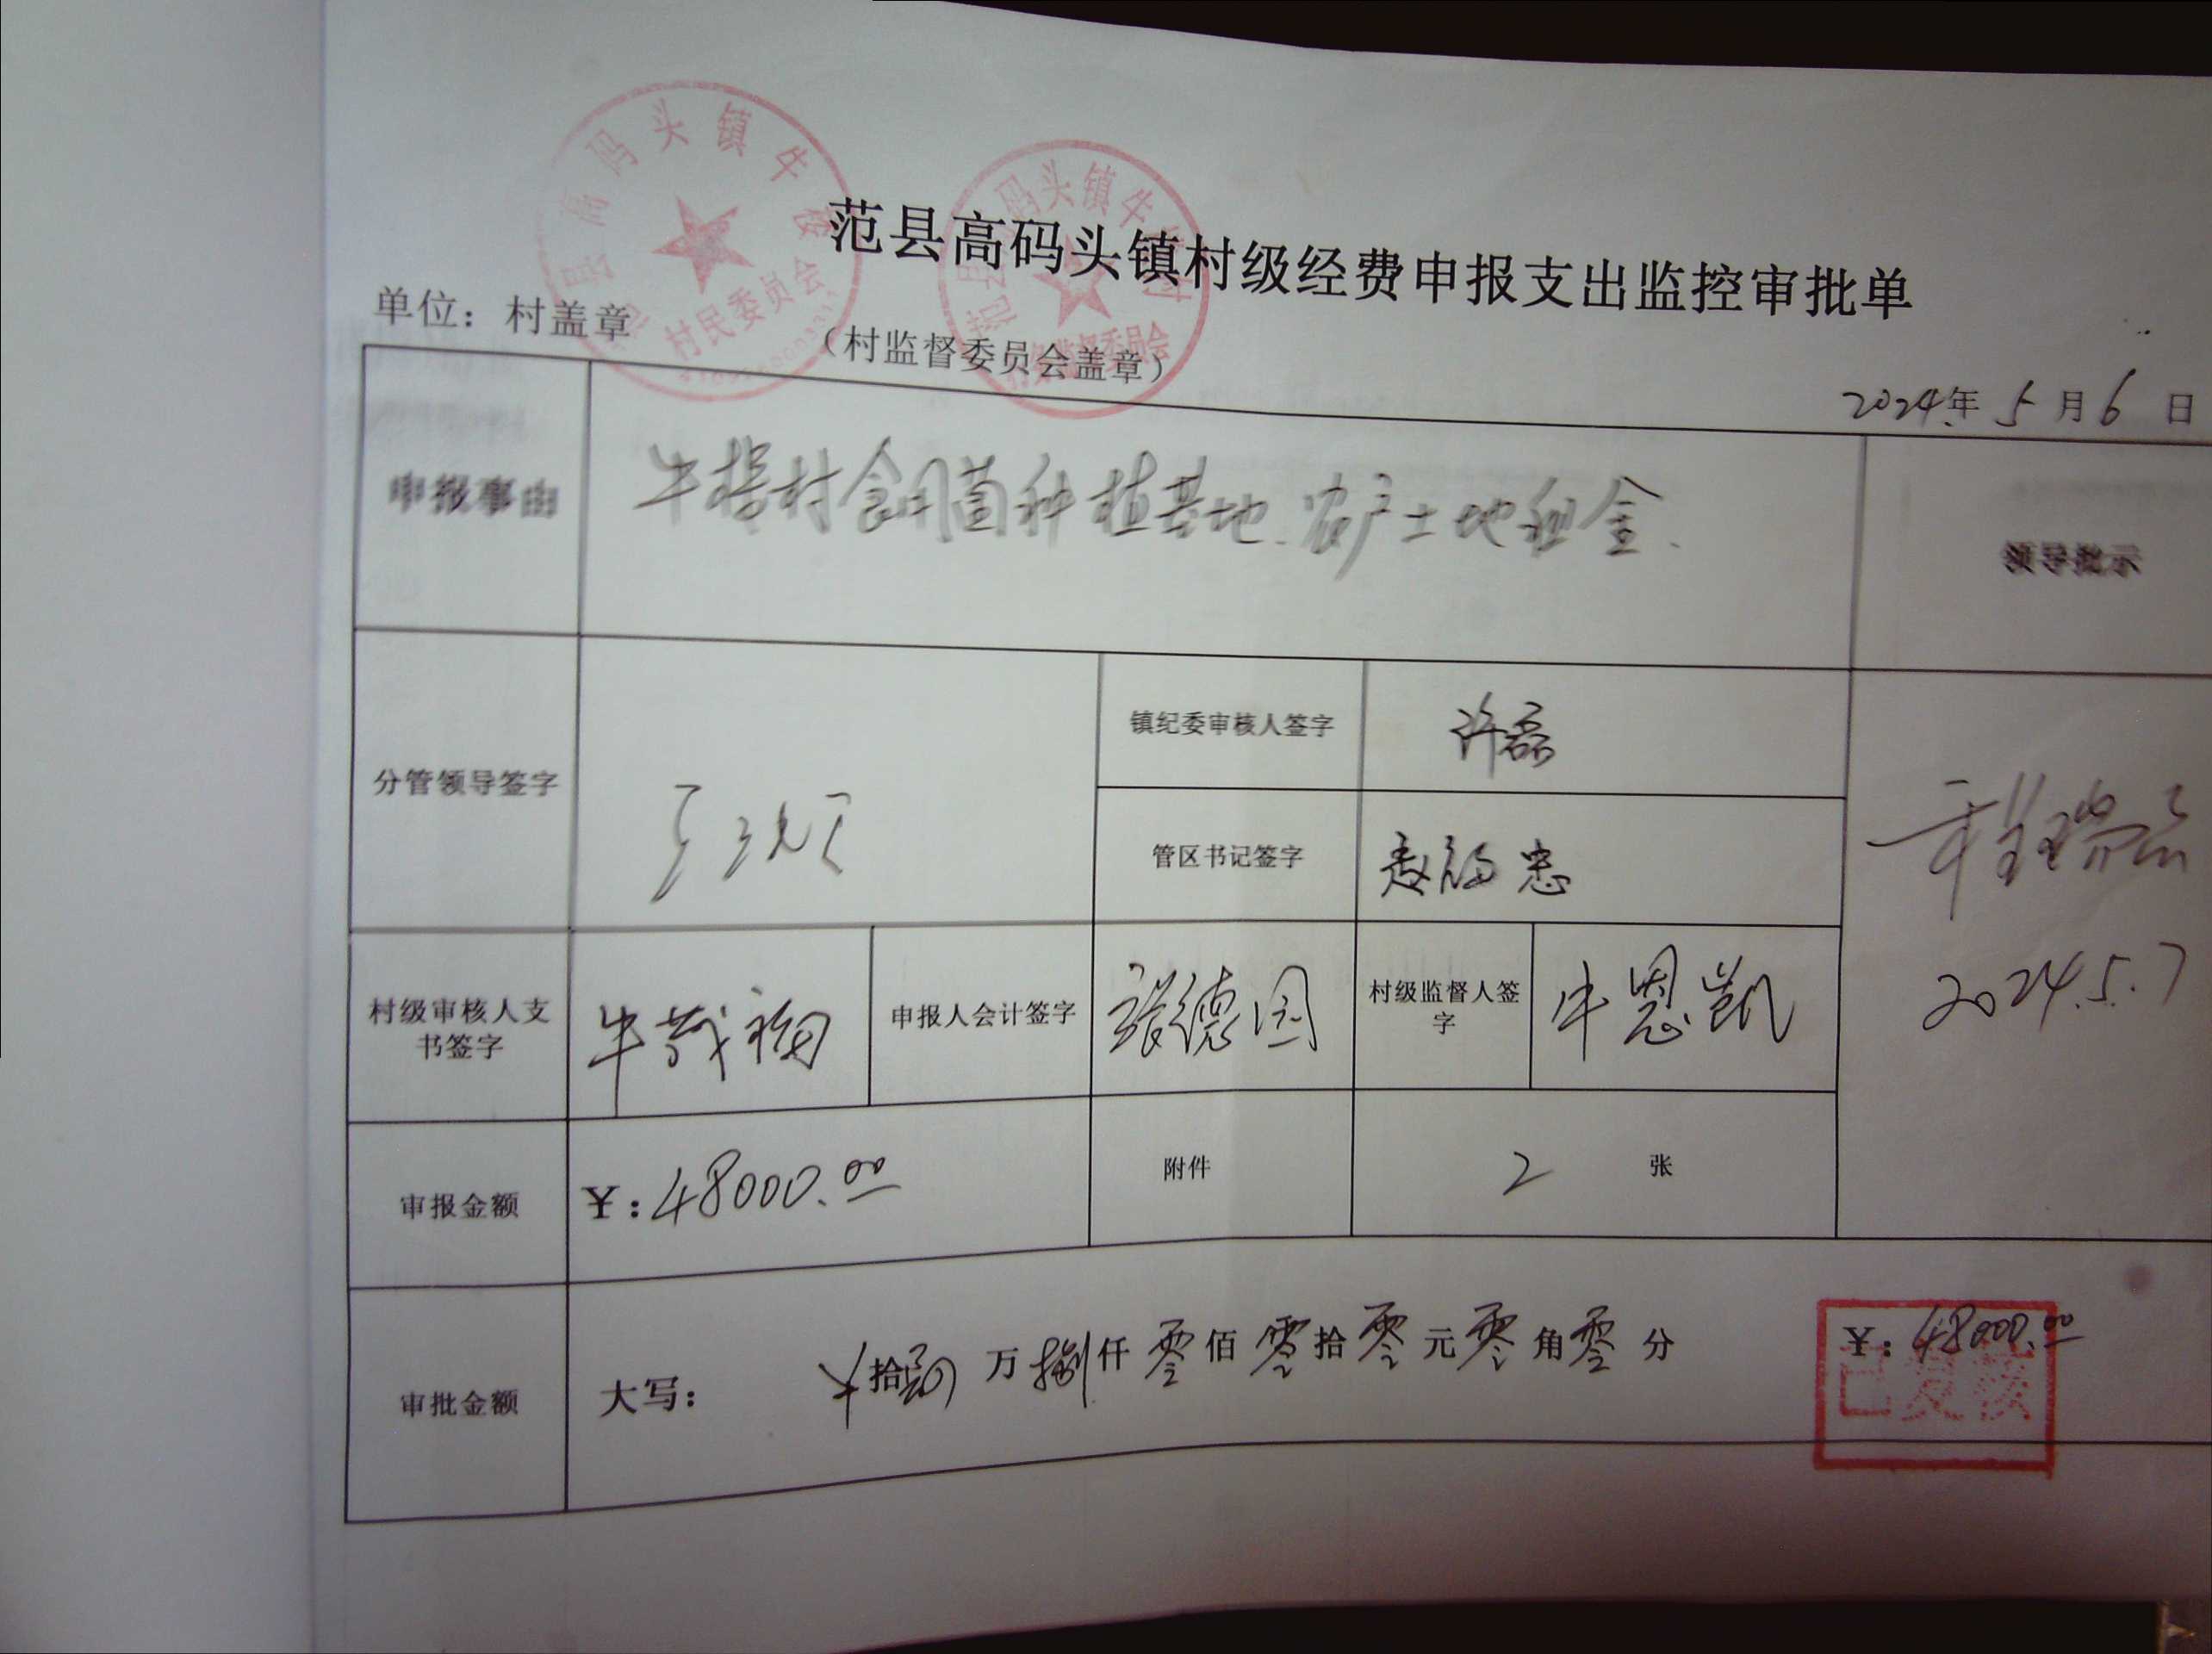 范县高码头镇村级经费申报支出监控审批单
单位：村盖章
（村监督委员会盖章）
村民委员会
2024年 5 月 6 日
申报事由
牛楼村食用菌种植基地、农户土地租金
领导批示
分管领导签字
镇纪委审核人签字
许磊
管区书记签字
赵福忠
2024.5.7
村级审核人支
书签字
申报人会计签字
张德国
村级监督人签
字
牛恩凯
审报金额
￥：48000.00
附件
2 张
审批金额
大写：
拾 肆 万 捌 仟 零 佰 零 拾 零 元 零 角 零 分
￥：48000.00
已复核